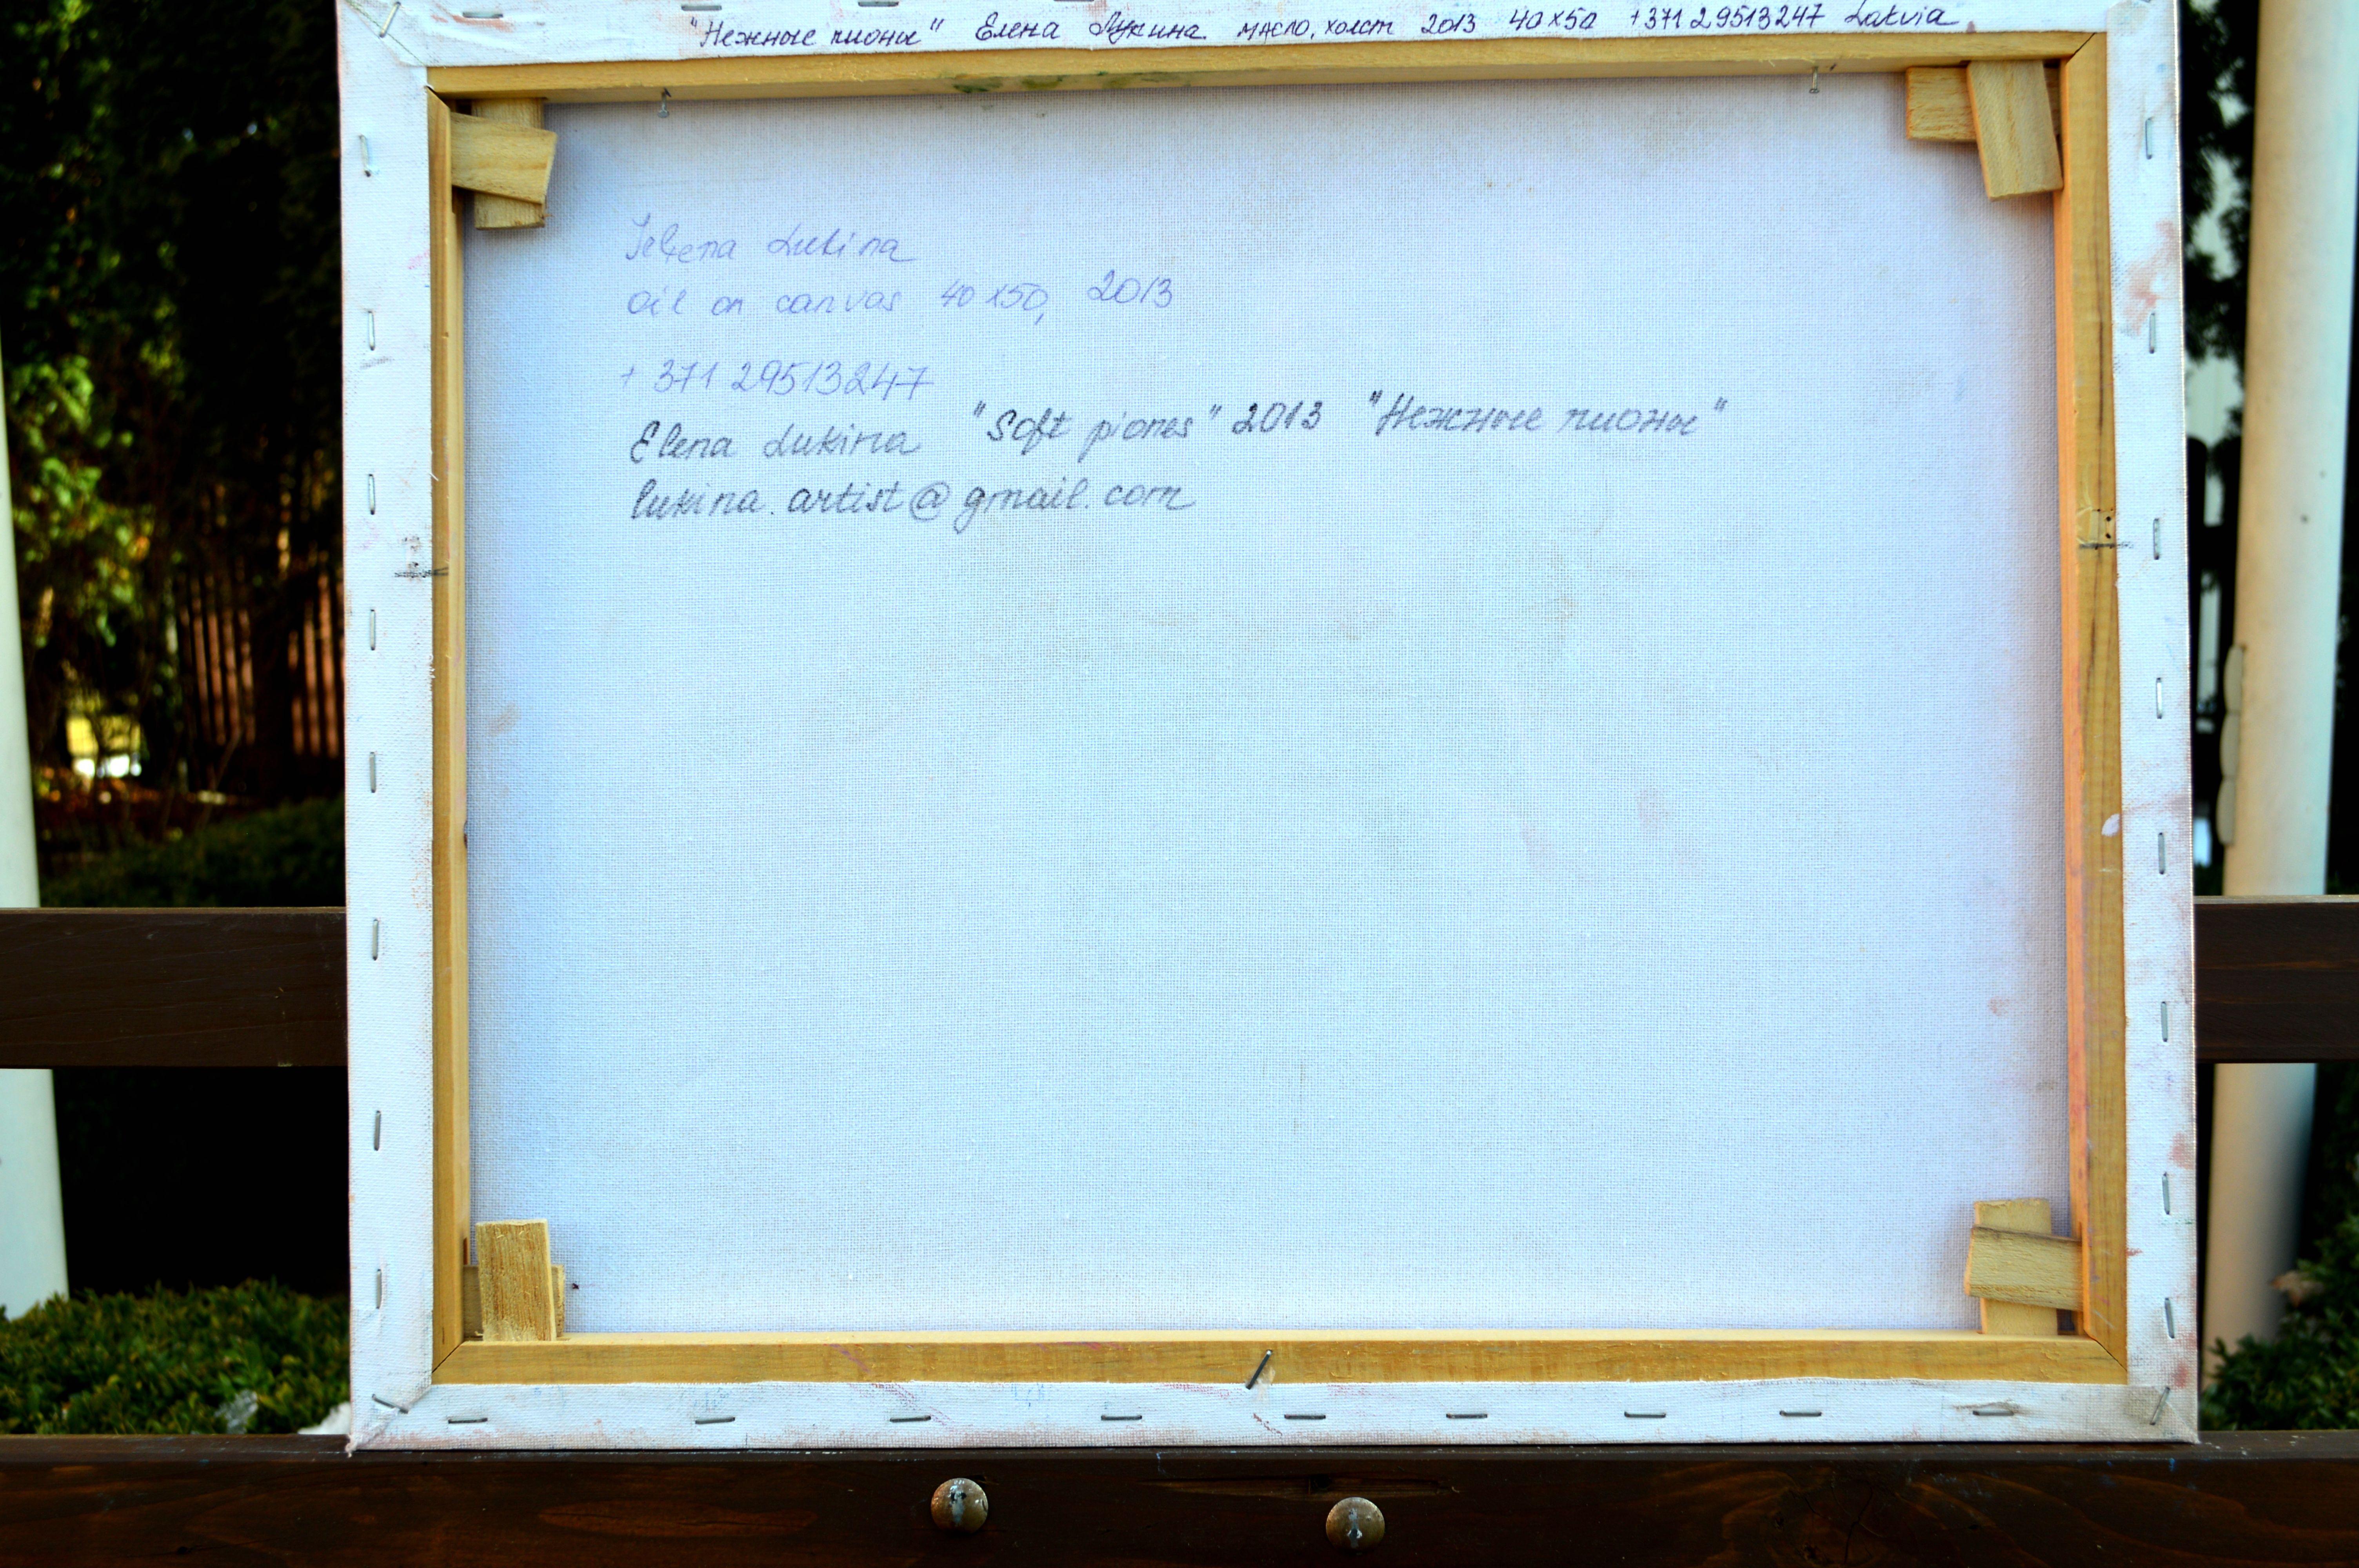 "Нежные пионы" Елена Лукина масло, холст 2013 40x50 +371 29513247 Latvia
Jeļena Lukina
oil on canvas 40x50, 2013
+371 29513247
Elena Lukina "Soft piones" 2013 "Нежные пионы"
lukina.artist@gmail.com